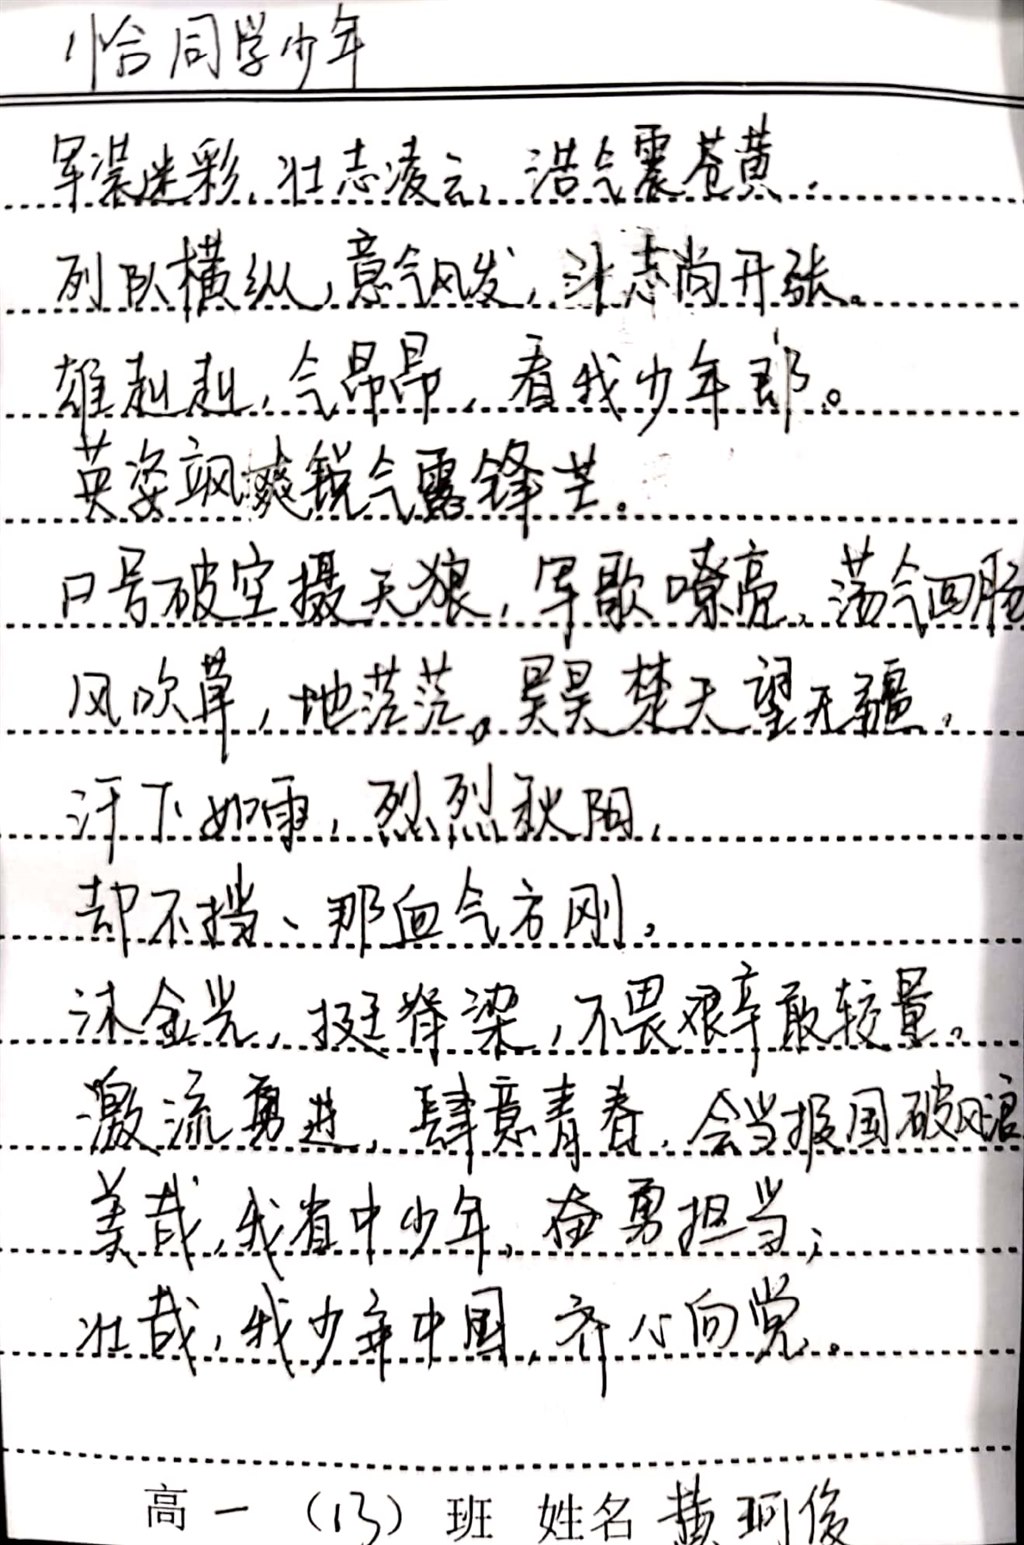 恰同学少年
军装迷彩,壮志凌云,浩气震苍黄,
列队横纵,意气风发,斗志尚开张。
雄赳赳,气昂昂,看我少年郎。
英姿飒爽锐气露锋芒。
口号破空摄天狼,军歌嘹亮,荡气回肠
风吹草,地茫茫。昊昊楚天望无疆,
汗下如雨,烈烈秋阳,
却不挡、那血气方刚,
沐金光,挺脊梁,不畏艰辛敢较量。
激流勇进,肆意青春,会当报国破风浪
美哉,我省中少年,奋勇担当;
壮哉,我少年中国,齐心向党。
高一(13)班 姓名 黄珂俊